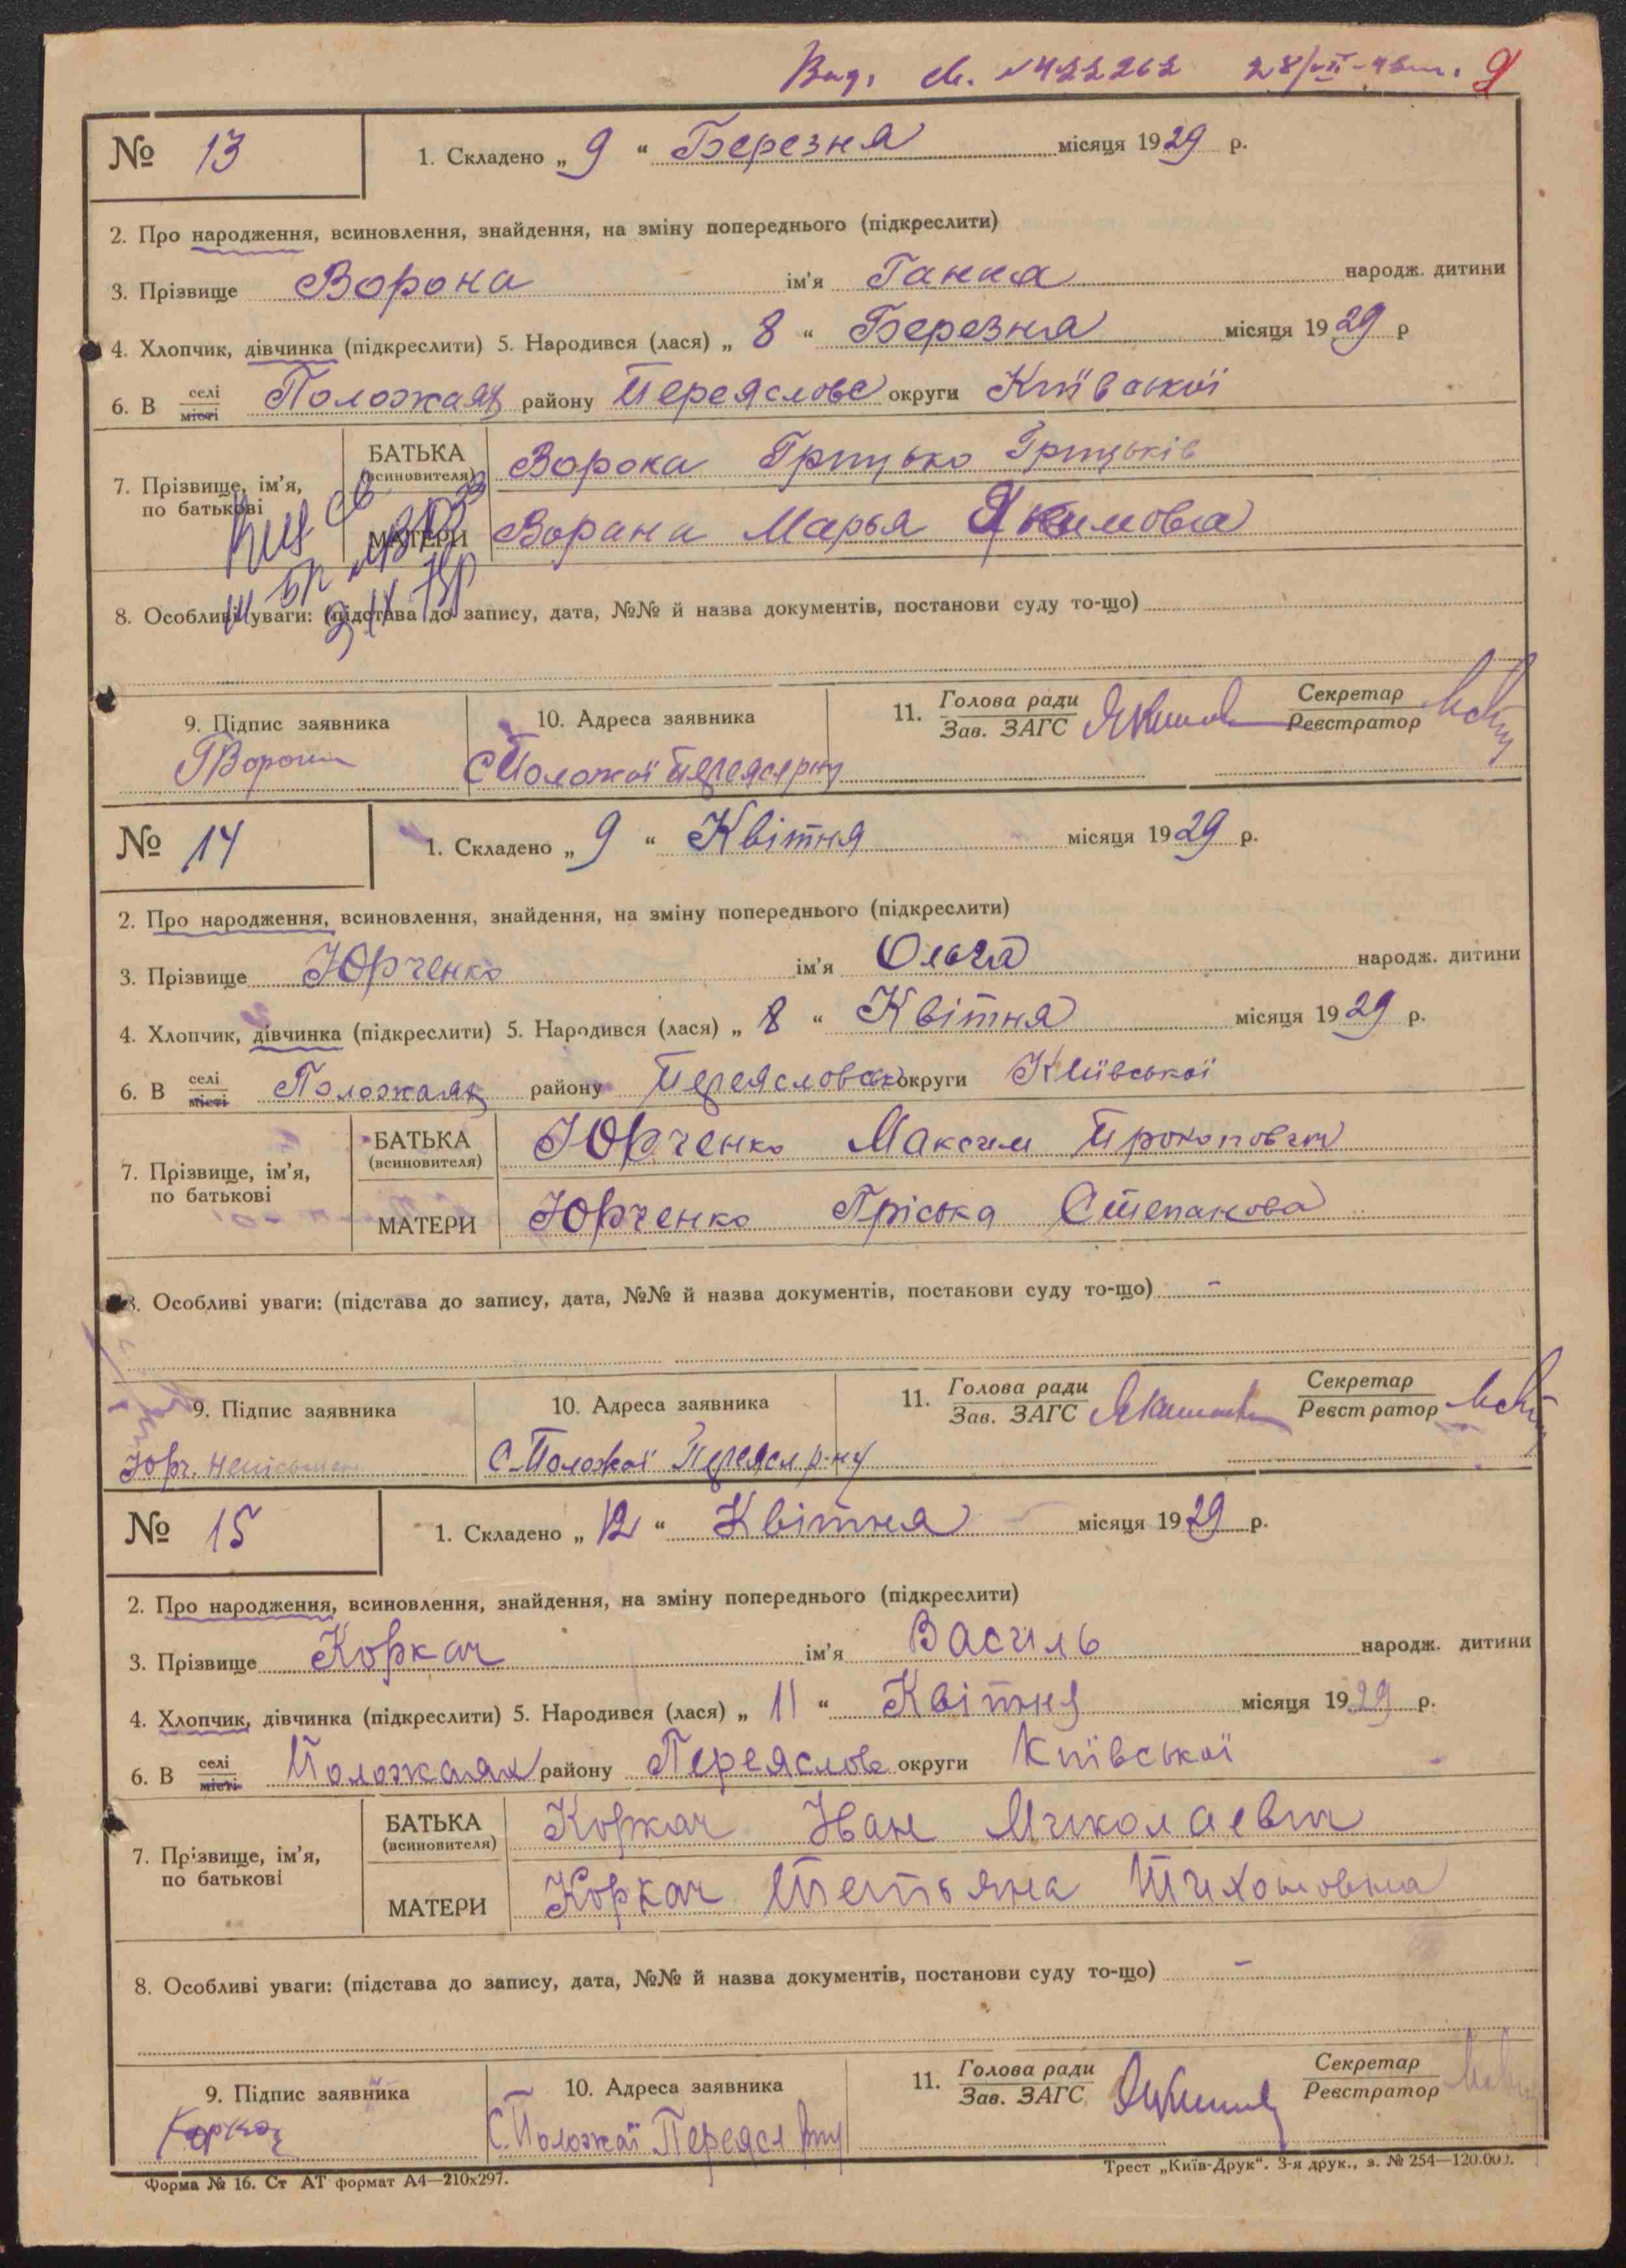 Вид. св. №422262 28/VII-45 г. 9
№ 13 1. Складено „ 9 “ Березня місяця 1929 р.
2. Про народження, всиновлення, знайдення, на зміну попереднього (підкреслити)
3. Прізвище Ворона ім'я Ганна народж. дитини
4. Хлопчик, дівчинка (підкреслити) 5. Народився (лася) „ 8 “ Березня місяця 1929 р
6. В селі/місті Положаях району Переясловс округи Київської
7. Прізвище, ім'я, по батькові
БАТЬКА (всиновителя) Ворона Грицько Грицьків
МАТЕРИ Ворана Марья Якимовна
8. Особливі уваги: (підстава до запису, дата, №№ й назва документів, постанови суду то-що)
9. Підпис заявника 10. Адреса заявника 11. Голова ради/Зав. ЗАГС Секретар/Реєстратор
ГВорона С Положаї Переясл рну
№ 14 1. Складено „ 9 “ Квітня місяця 1929 р.
2. Про народження, всиновлення, знайдення, на зміну попереднього (підкреслити)
3. Прізвище Юрченко ім'я Ольга народж. дитини
4. Хлопчик, дівчинка (підкреслити) 5. Народився (лася) „ 8 “ Квітня місяця 1929 р.
6. В селі/місті Положаях району Переясловськ округи Київської
7. Прізвище, ім'я, по батькові
БАТЬКА (всиновителя) Юрченко Максим Прокопович
МАТЕРИ Юрченко Пріська Степанова
8. Особливі уваги: (підстава до запису, дата, №№ й назва документів, постанови суду то-що) -
9. Підпис заявника 10. Адреса заявника 11. Голова ради/Зав. ЗАГС Секретар/Реєстратор
Юрч. С-Положаї Переясл. р-ну
№ 15 1. Складено „ 12 “ Квітня місяця 1929 р.
2. Про народження, всиновлення, знайдення, на зміну попереднього (підкреслити)
3. Прізвище Коркач ім'я Василь народж. дитини
4. Хлопчик, дівчинка (підкреслити) 5. Народився (лася) „ 11 “ Квітня місяця 1929 р.
6. В селі/місті Положаях району Переяслов округи Київської
7. Прізвище, ім'я, по батькові
БАТЬКА (всиновителя) Коркач Іван Миколаевич
МАТЕРИ Коркач Тетьяна Тихоновна
8. Особливі уваги: (підстава до запису, дата, №№ й назва документів, постанови суду то-що) -
9. Підпис заявника 10. Адреса заявника 11. Голова ради/Зав. ЗАГС Секретар/Реєстратор
Коркач С. Положаї Переясл рну
Форма № 16. Ст АТ формат А4—210х297. Трест „Київ-Друк“. 3-я друк., з. № 254—120.000.